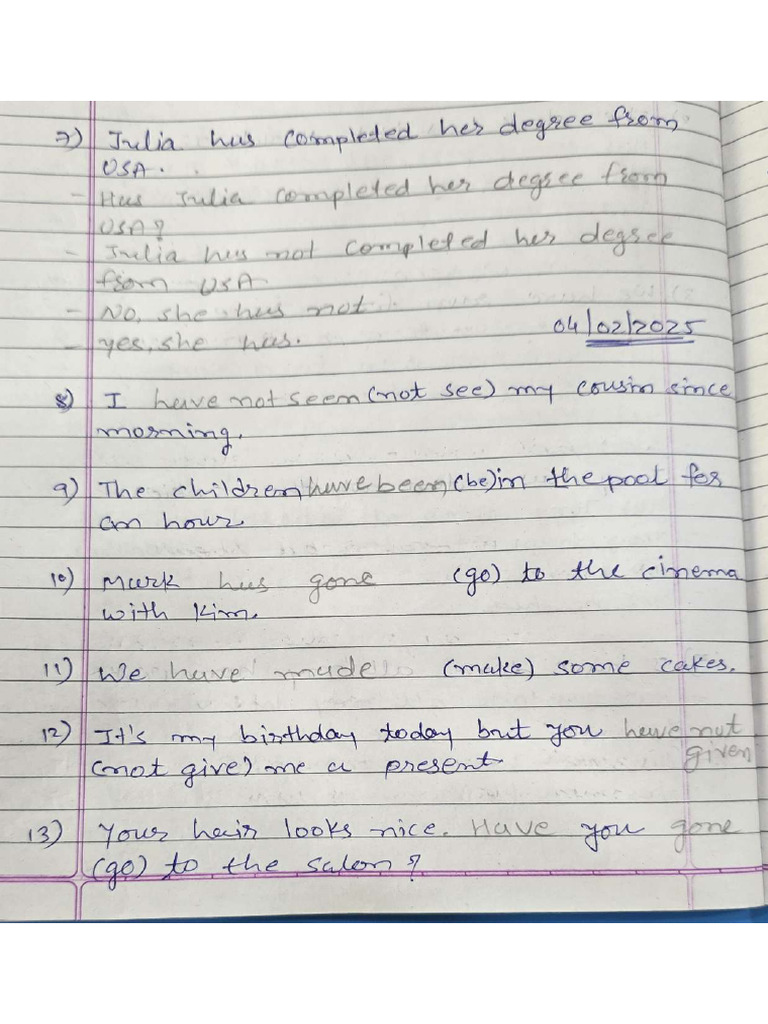 7) Julia has completed her degree from
USA.
- Has Julia completed her degree from
USA?
- Julia has not completed her degree
from USA.
- No, she has not.
- yes, she has.
04/02/2025
8) I have not seen (not see) my cousin since
morning.
9) The children have been (be) in the pool for
an hour.
10) Mark has gone (go) to the cinema
with Kim.
11) We have made (make) some cakes.
12) It's my birthday today but you have not
given
(not give) me a present
13) Your hair looks nice. Have you gone
(go) to the salon?